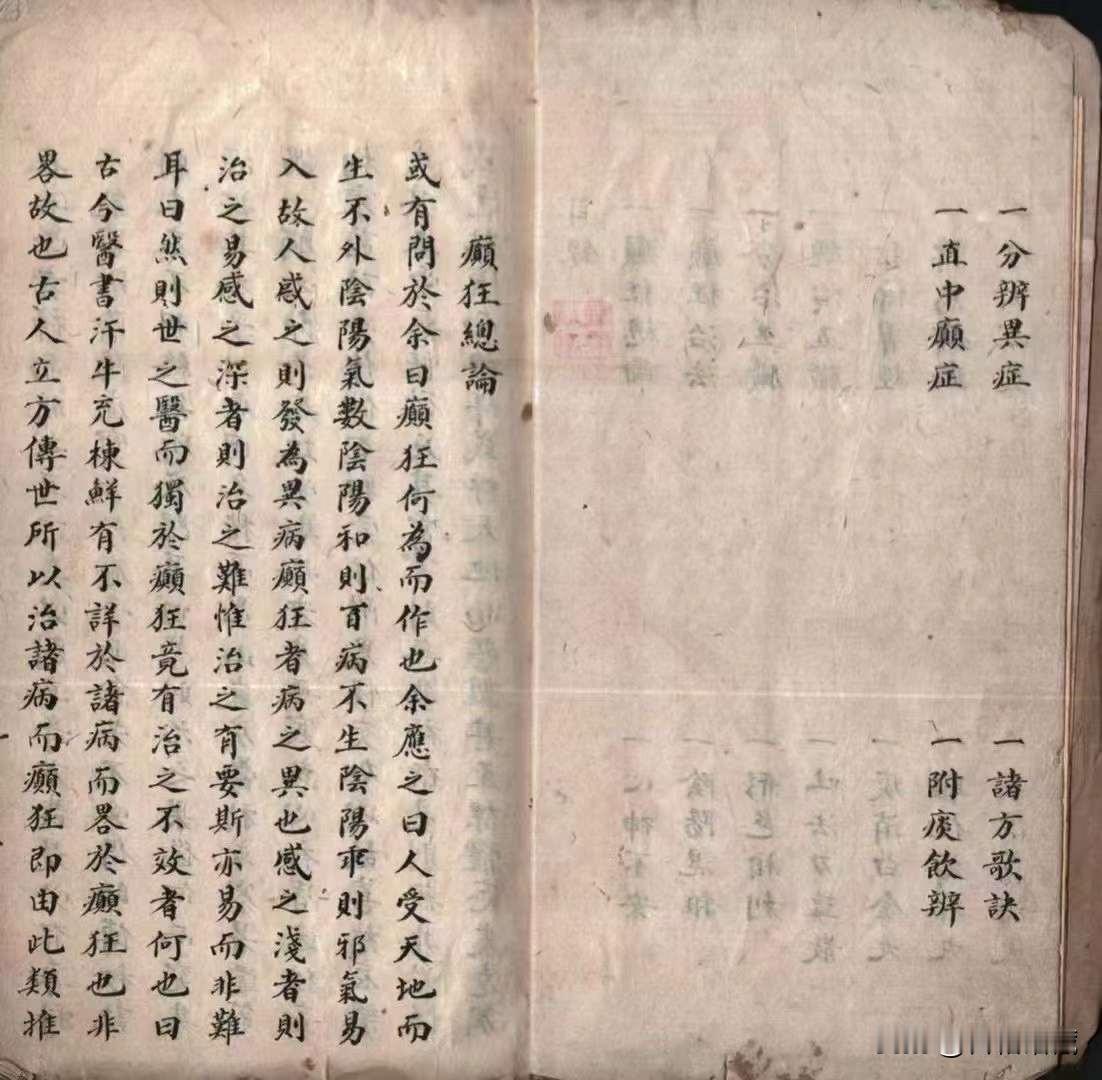 一分辨異症
一諸方歌訣
一直中癲症
一附痰飲辨
癲狂總論
或有問於余曰癲狂何為而作也余應之曰人受天地而
生不外陰陽氣數陰陽和則百病不生陰陽乖則邪氣易
入故人感之則發為異病癲狂者病之異也感之淺者則
治之易感之深者則治之難惟治之有要斯亦易而非難
耳曰然則世之醫而獨於癲狂竟有治之不效者何也曰
古今醫書汗牛充棟鮮有不詳於諸病而畧於癲狂也非
畧故也古人立方傳世所以治諸病而癲狂即由此類推